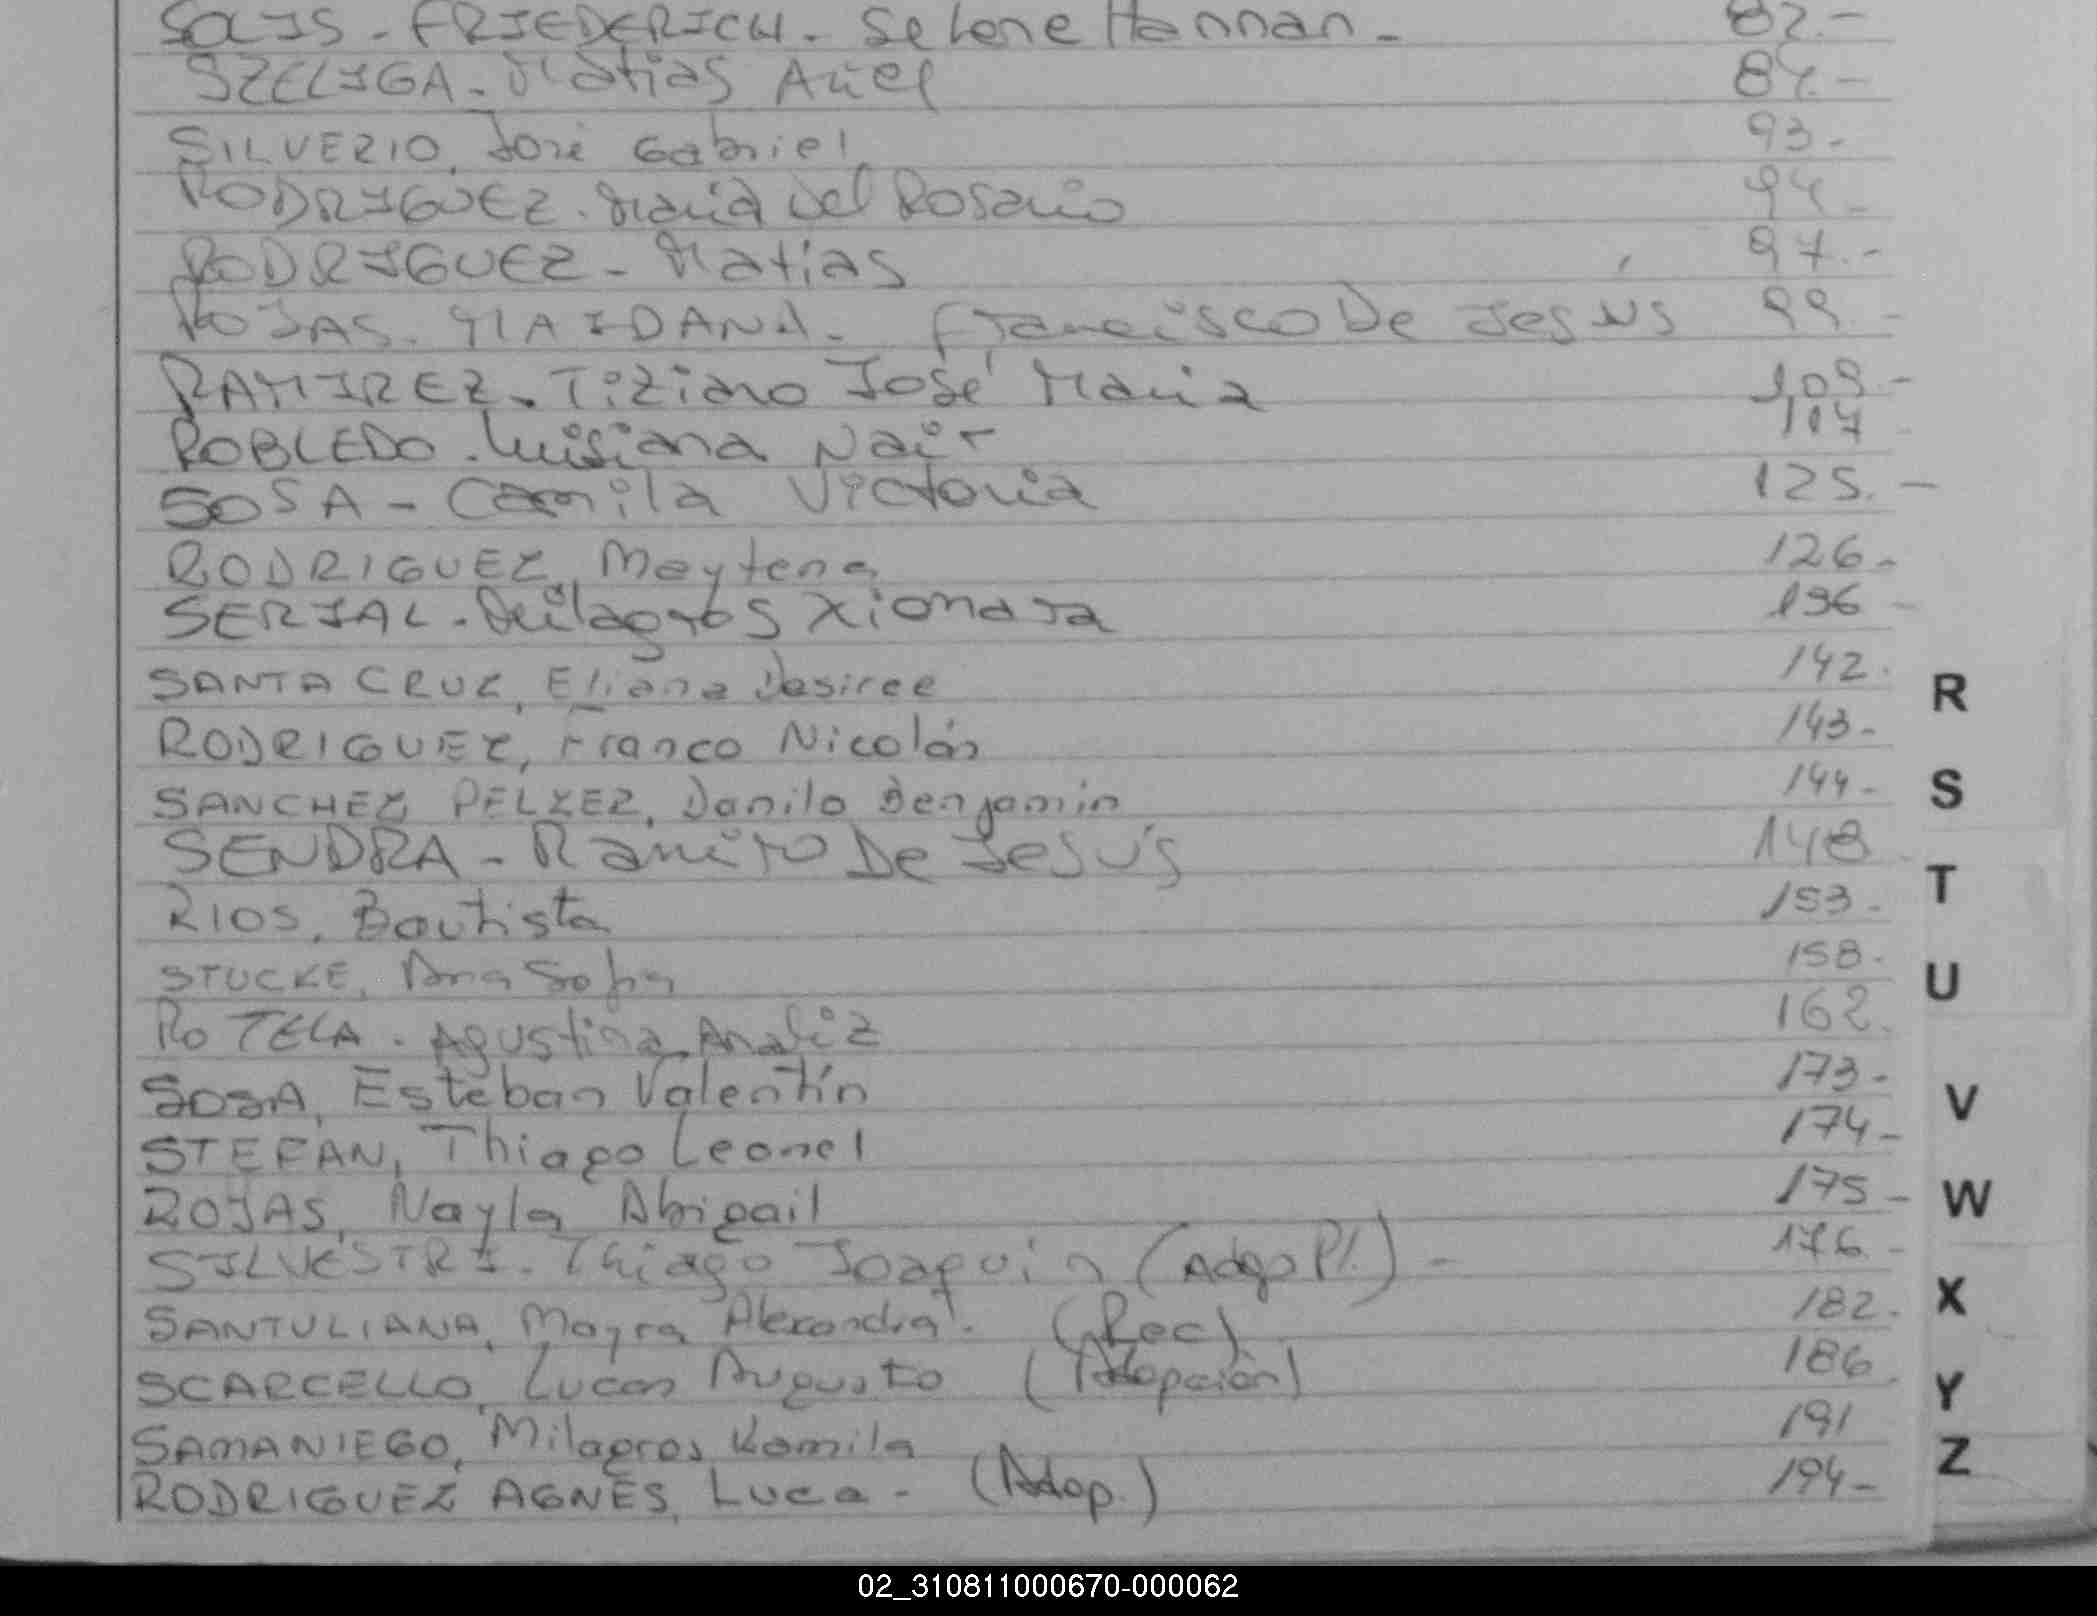 SOLIS - FRIEDERICH - Selene Hannan - 82.-
SZELIGA - Matias Ariel 84.-
SILVERIO, José Gabriel 93.-
RODRIGUEZ. María Del Rosario 94.-
RODRIGUEZ - Matias 97.-
ROJAS. MAIDANA - Francisco De Jesús 99.-
RAMIREZ - Tiziano José Maria 109.-
ROBLEDO. Luisiana Nair 117
SOSA - Camila Victoria 125.-
RODRIGUEZ, Maytena 126.-
SERIAL - Milagros Xiomara 136 -
SANTA CRUZ, Eliana Desiree 142.
RODRIGUEZ, Franco Nicolás 143.-
SANCHEZ PELZER, Danilo Benjamin 144.-
SENDRA - Ramiro De Jesús 148
RIOS, Bautista 153.-
STUCKE, Ana Sofia 158.-
ROTELA. Agustina Analiz 162.
SOSA, Esteban Valentín 173.-
STEFAN, Thiago Leonel 174-
ROJAS, Nayla Abigail 175-
SILVESTRI. Thiago Joaquin (Adop Pl.) - 176.-
SANTULIANA, Mayra Alexandra. (Rec) 182.
SCARCELLO, Lucas Augusto (Adopción) 186.
SAMANIEGO, Milagros Kamila 191
RODRIGUEZ AGNES, Luca - (Adop.) 194-
R
S
T
U
V
W
X
Y
Z
02_310811000670-000062